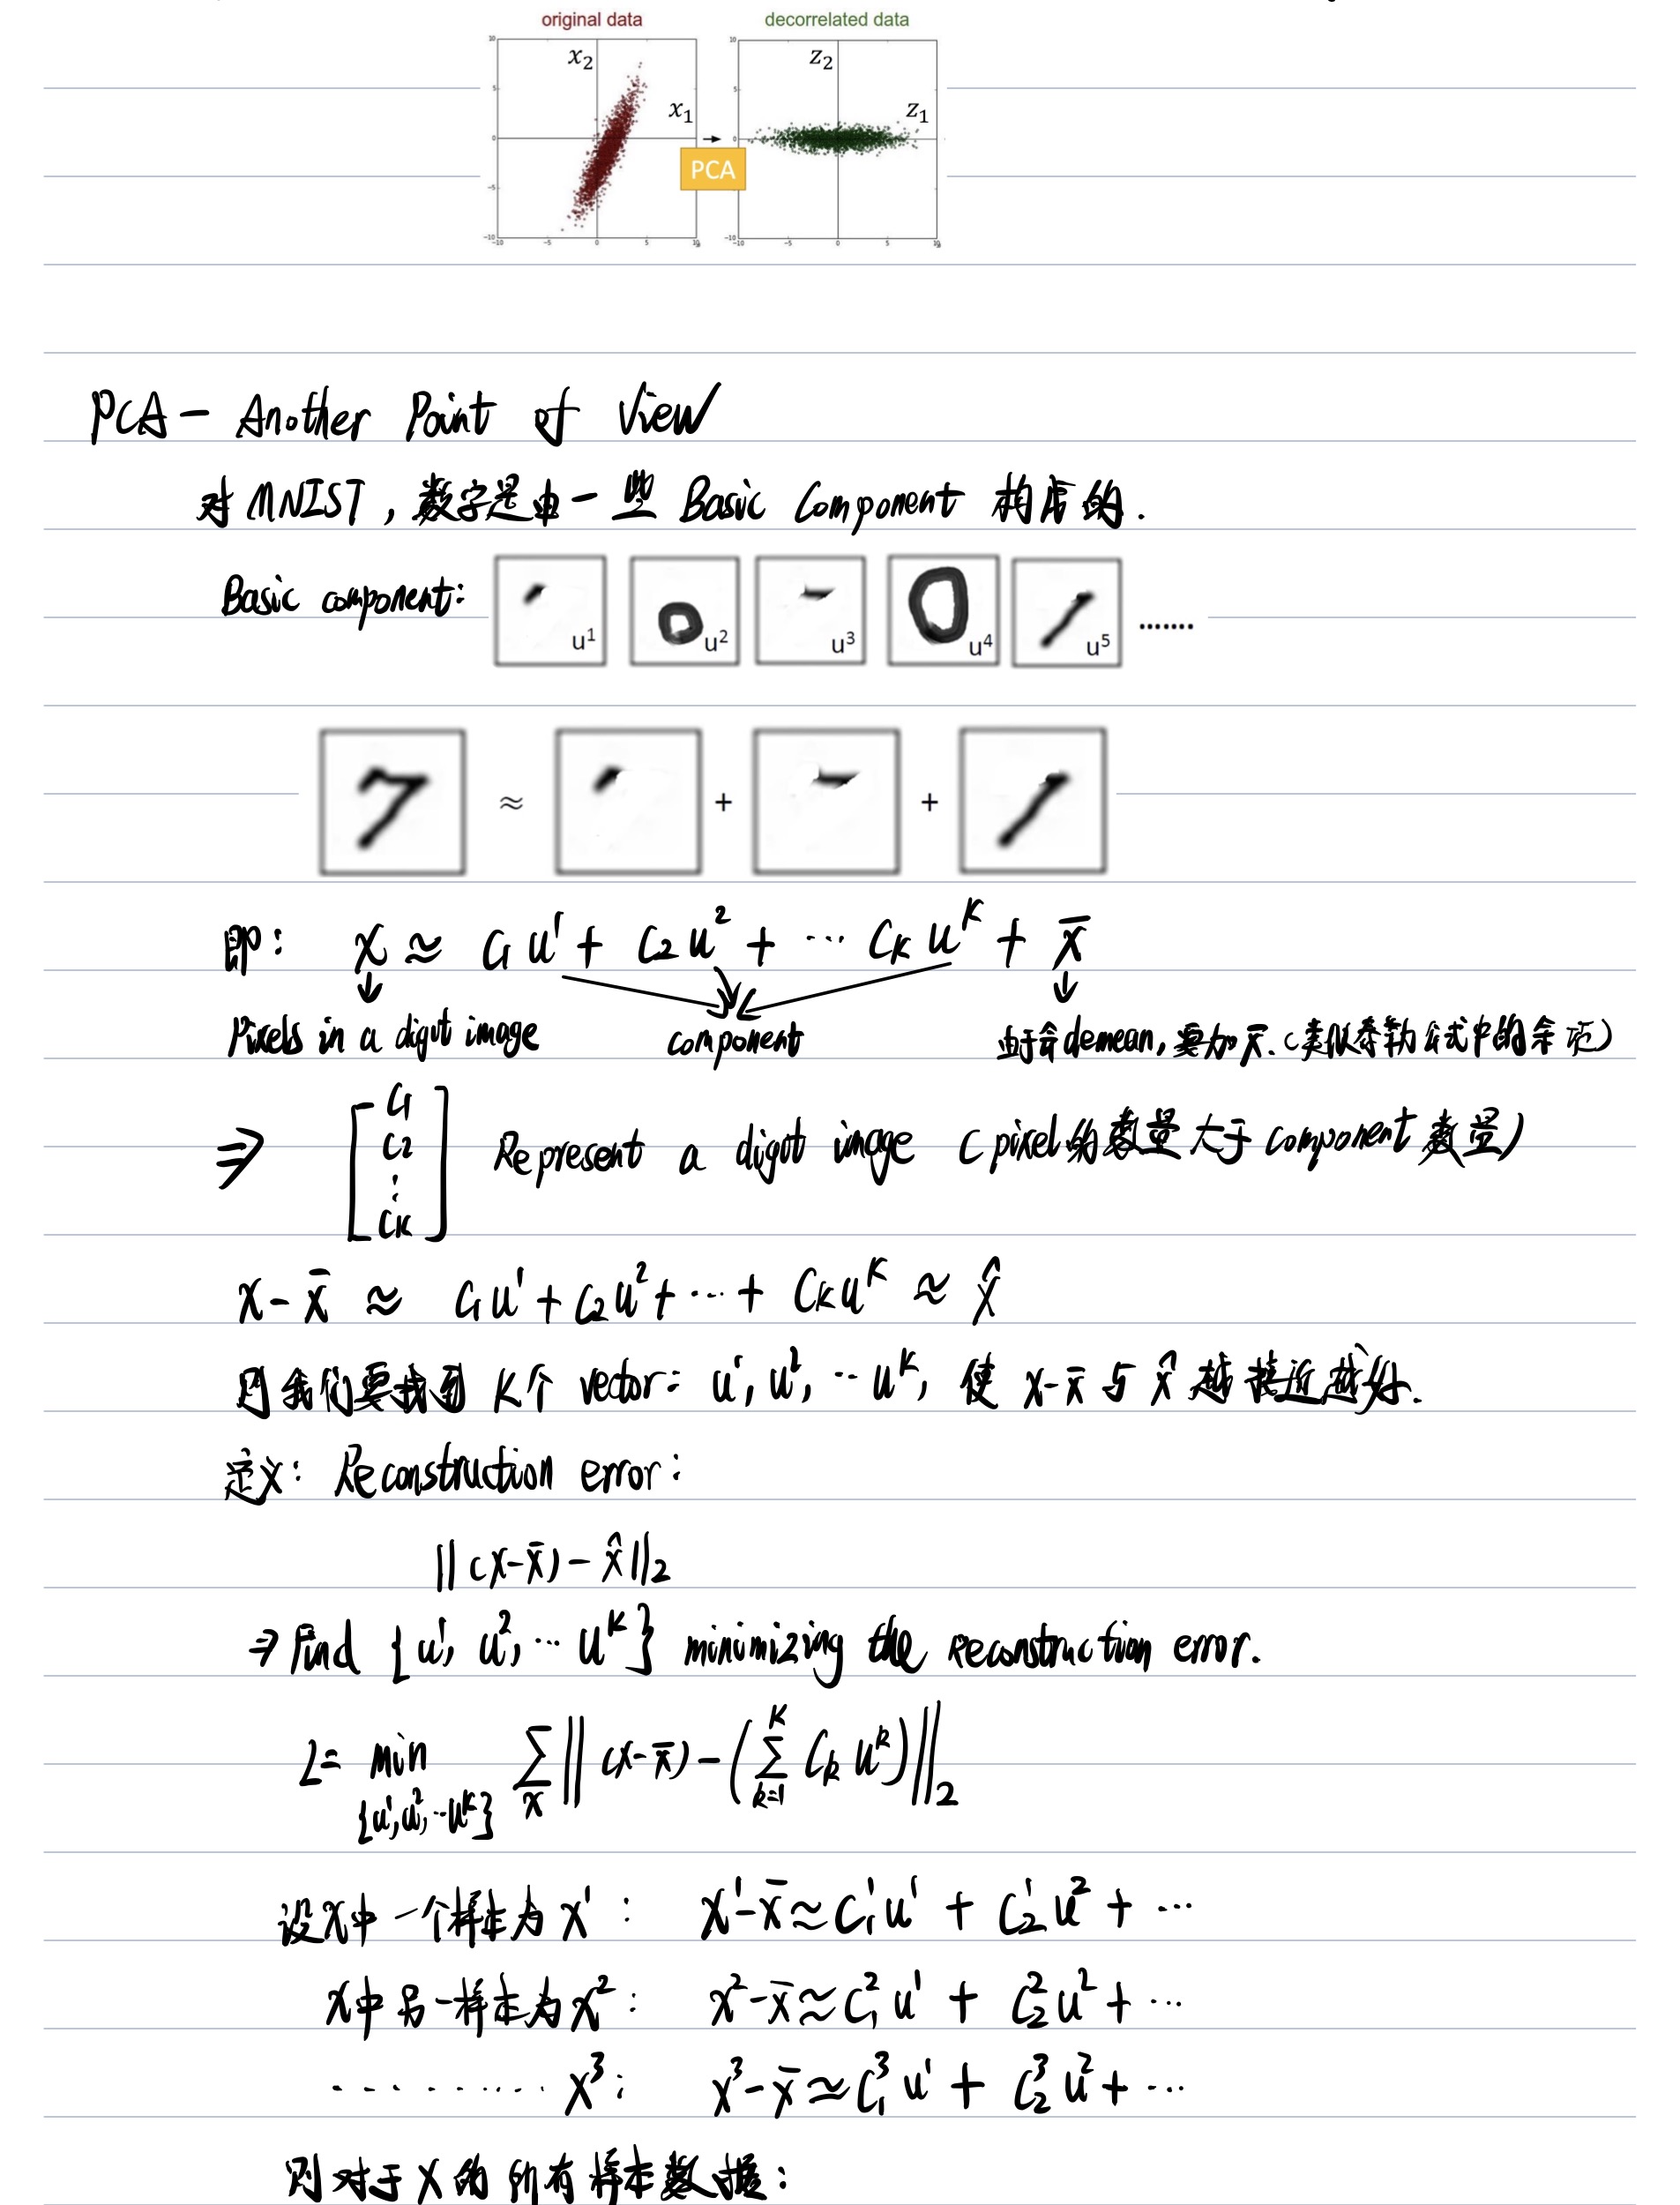 original data decorrelated data
x₂ z₂
x₁ z₁
PCA
10 5 0 −5 −10
−10 −5 0 5 10
10 5 0 −5 −10
−10 −5 0 5 10
PCA — Another Point of View
对 MNIST，数字是由一些 Basic Component 构成的.
Basic component: u¹ u² u³ u⁴ u⁵ .......
≈ + +
即： x ≈ c₁u¹ + c₂u² + ⋯ cₖuᴷ + x̄
↓ ↓
Pixels in a digit image component 由于会demean，要加 x̄.（类似泰勒公式中的余项）
⇒ [c₁ c₂ ⋮ cₖ] Represent a digit image (pixel的数量大于component数量)
x − x̄ ≈ c₁u¹ + c₂u² + ⋯ + cₖuᴷ ≈ x̂
则我们要找到 K个 vector： u¹, u², ⋯ uᴷ, 使 x−x̄ 与 x̂ 越接近越好.
定义： Reconstruction error:
‖(x−x̄) − x̂‖₂
⇒ Find {u¹, u², ⋯ uᴷ} minimizing the reconstruction error.
L = min_{u¹,u²,⋯uᴷ} Σ_x ‖(x−x̄) − (Σ_{k=1}^{K} cₖuᵏ)‖₂
设x中一个样本为 x¹ ： x¹−x̄ ≈ c₁¹u¹ + c₂¹u² + ⋯
x中另一样本为 x² ： x²−x̄ ≈ c₁²u¹ + c₂²u² + ⋯
⋯⋯⋯ x³ ： x³−x̄ ≈ c₁³u¹ + c₂³u² + ⋯
则对于 x 的所有样本数据：